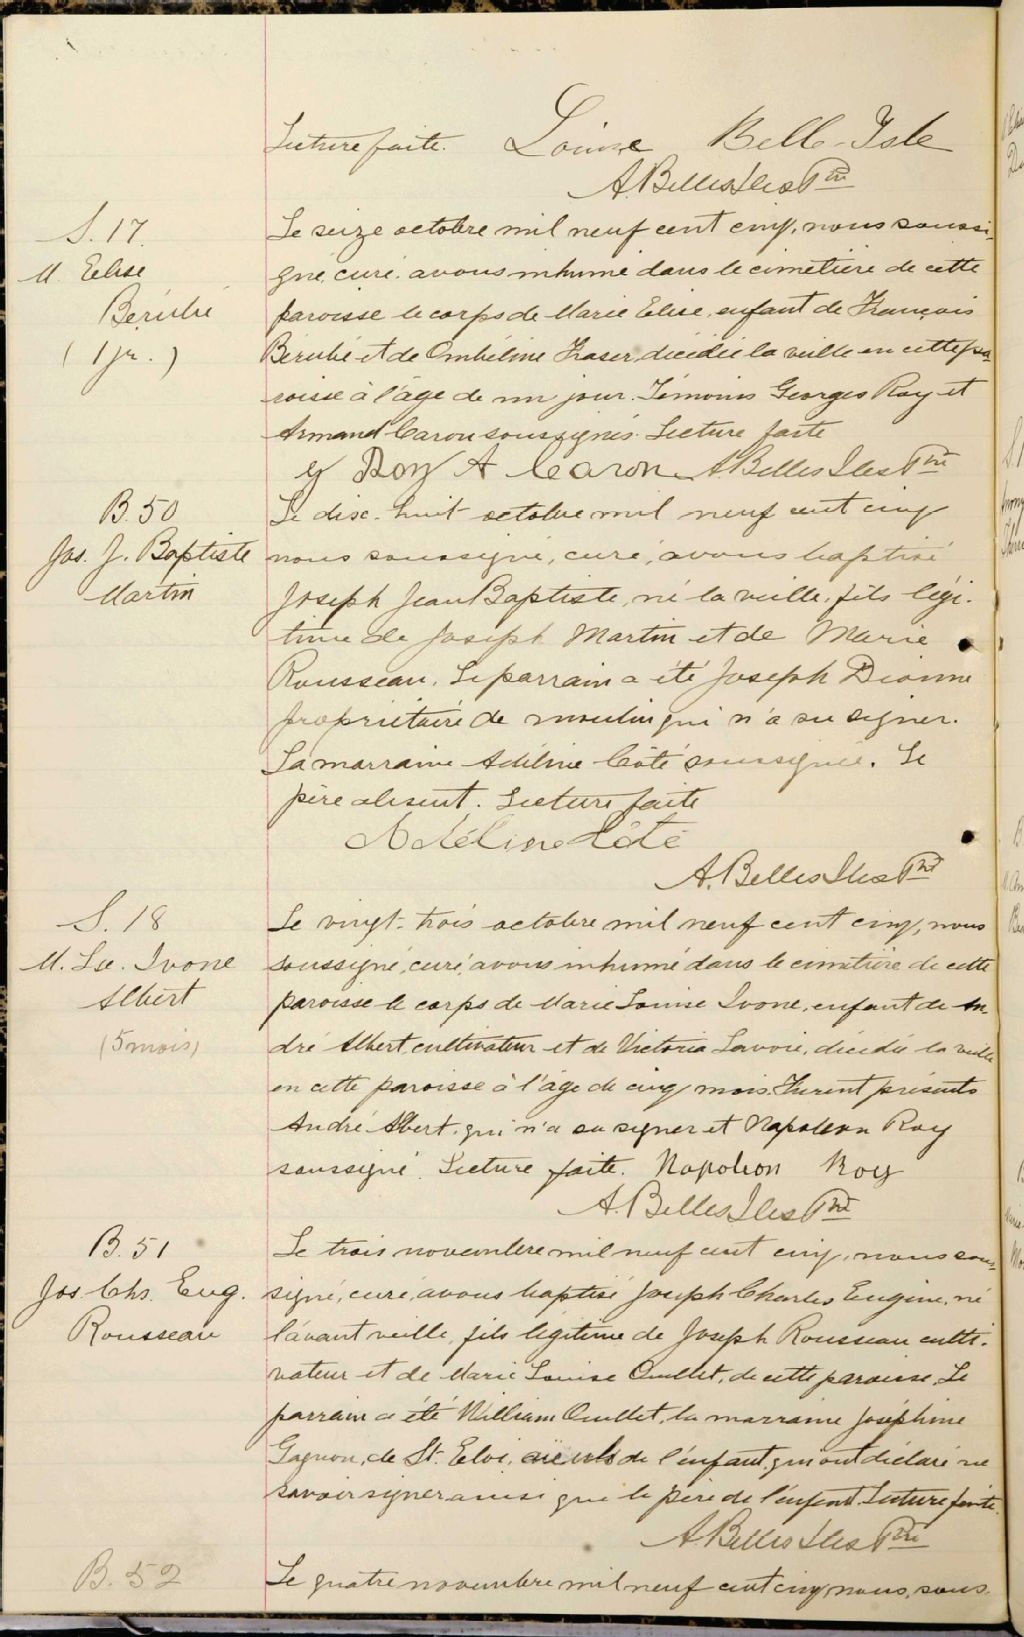 Lecture faite. Louise Belle-Isle
A. BellesIles Ptre
S. 17.
M. Elise
Bérubé
(1 jr.)
Le seize octobre mil neuf cent cinq, nous soussi-
gné, curé, avons inhumé dans le cimetière de cette
paroisse le corps de Marie Elise, enfant de François
Bérubé et de Ombéline Fraser, décédée la veille en cette pa-
roisse à l'âge de un jour. Témoins Georges Roy et
Armand Caron soussignés. Lecture faite
G Roy A Caron A. BellesIles Ptre
B. 50
Jos. J. Baptiste
Martin
Le dix-huit octobre mil neuf cent cinq
nous soussigné, curé, avons baptisé
Joseph Jean Baptiste, né la veille, fils légi-
time de Joseph Martin et de Marie
Rousseau. Le parrain a été Joseph Dionne
propriétaire de moulin qui n'a su signer.
La marraine Adéline Côté soussignée. Le
père absent. Lecture faite
Adéline Côté
A. BellesIles Ptre
S. 18
M. Lse. Ivone
Albert
(5 mois)
Le vingt-trois octobre mil neuf cent cinq, nous
soussigné, curé, avons inhumé dans le cimetière de cette
paroisse le corps de Marie Louise Ivone, enfant de An
dré Albert, cultivateur et de Victoria Lavoie, décédée la veille
en cette paroisse à l'âge de cinq mois. Furent présents
André Albert qui n'a su signer et Napoléon Roy
soussigné. Lecture faite. Napoleon Roy
A. BellesIles Ptre
B. 51
Jos. Chs. Eug.
Rousseau
Le trois novembre mil neuf cent cinq, nous sous-
signé, curé, avons baptisé Joseph Charles Eugène, né
l'avant veille, fils légitime de Joseph Rousseau culti-
vateur et de Marie Louise Ouellet, de cette paroisse. Le
parrain a été William Ouellet, la marraine Joséphine
Gagnon, de St. Eloi, aïeuls de l'enfant, qui ont déclaré ne
savoir signer ainsi que le père de l'enfant. Lecture faite.
A. BellesIles Ptre
B. 52
Le quatre novembre mil neuf cent cinq, nous, sous-